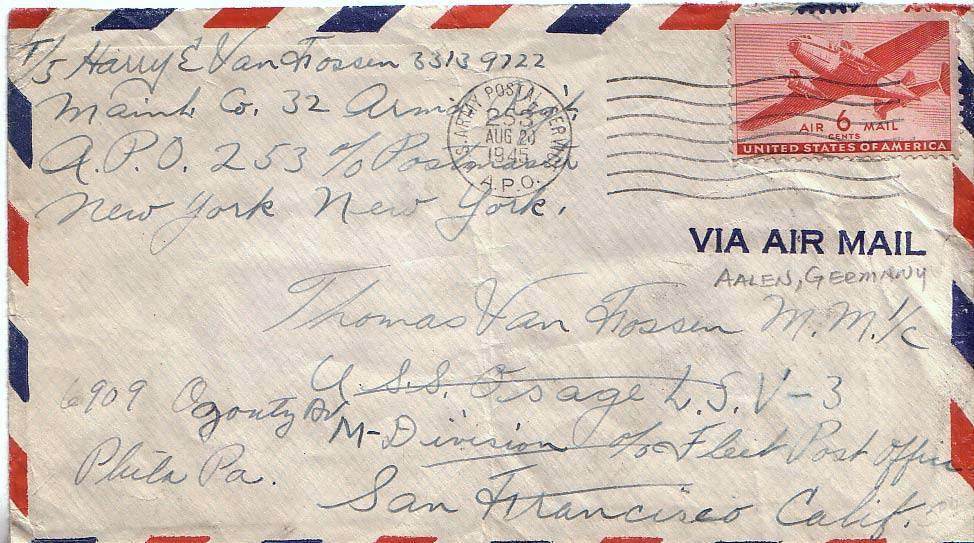 T/5 Harry E Van Fossen 33139722
Maint. Co. 32 Armd.
A.P.O. 253 c/o Postmaster
New York New York.
U.S. ARMY POSTAL SERVICE
253
AUG 20
1945
A.P.O.
AIR 6 MAIL
CENTS
UNITED STATES OF AMERICA
VIA AIR MAIL
AALEN, GERMANY
Thomas Van Fossen M.M.1/c
U.S.S. Osage L.S.V-3
M-Division c/o Fleet Post Office
San Francisco Calif.
6909 Ogontz Av
Phila Pa.